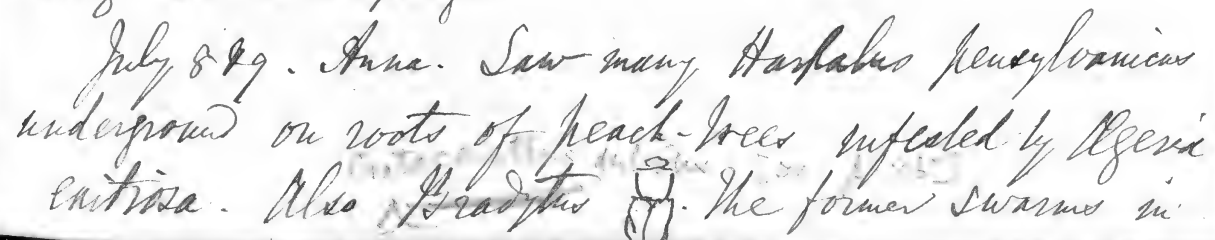 July 8 & 9. Anna. Saw many Harpalus pensylvanicus
underground on roots of peach-trees infested by Ægeria
exitiosa. Also Bradytus . The former swarms in